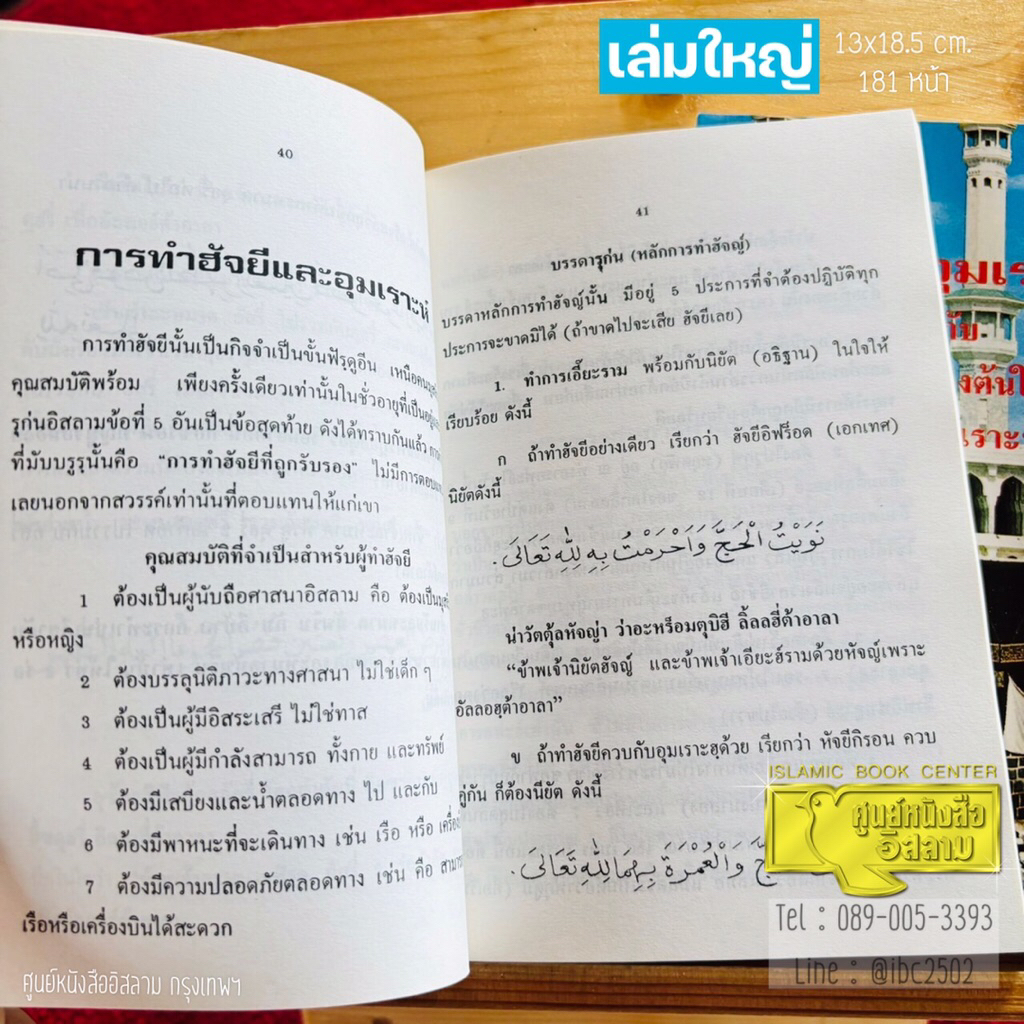 เล่มใหญ่
13x18.5 cm.
181 หน้า
40
การทำฮัจยีและอุมเราะห์
การทำฮัจยีนั้นเป็นกิจจำเป็นขั้นฟัรฺดูอีน เหนือคน
คุณสมบัติพร้อม เพียงครั้งเดียวเท่านั้นในชั่วอายุที่เป็นอยู่
รูก่นอิสลามข้อที่ 5 อันเป็นข้อสุดท้าย ดังได้ทราบกันแล้ว
ที่มับบรูรุนั้นคือ “การทำฮัจยีที่ถูกรับรอง” ไม่มีการตอบแทน
เลยนอกจากสวรรค์เท่านั้นที่ตอบแทนให้แก่เขา
คุณสมบัติที่จำเป็นสำหรับผู้ทำฮัจยี
1 ต้องเป็นผู้นับถือศาสนาอิสลาม คือ ต้องเป็น
หรือหญิง
2 ต้องบรรลุนิติภาวะทางศาสนา ไม่ใช่เด็ก ๆ
3 ต้องเป็นผู้มีอิสระเสรี ไม่ใช่ทาส
4 ต้องเป็นผู้มีกำลังสามารถ ทั้งกาย และทรัพย์
5 ต้องมีเสบียงและน้ำตลอดทาง ไป และกับ
6 ต้องมีพาหนะที่จะเดินทาง เช่น เรือ หรือ เครื่อง
7 ต้องมีความปลอดภัยตลอดทาง เช่น คือ สามา
เรือหรือเครื่องบินได้สะดวก
41
บรรดารุก่น (หลักการทำฮัจญ์)
บรรดาหลักการทำฮัจญ์นั้น มีอยู่ 5 ประการที่จำต้องปฏิบัติทุก
ประการจะขาดมิได้ (ถ้าขาดไปจะเสีย ฮัจยีเลย)
1. ทำการเอี๊ยะราม พร้อมกับนิยัต (อธิฐาน) ในใจให้
เรียบร้อย ดังนี้
ก ถ้าทำฮัจยีอย่างเดียว เรียกว่า ฮัจยีอิฟร็อด (เอกเทศ)
นิยัตดังนี้
نَوَيْتُ الْحَجَّ وَاَحْرَمْتُ بِهِ لِلّٰهِ تَعَالَى.
น่าวัตตุ้ลหัจญ่า ว่าอะหร็อมตุบิฮี ลิ้ลลฮี่ต้าอาลา
“ข้าพเจ้านิยัตฮัจญ์ และข้าพเจ้าเอียะฮ์รามด้วยหัจญ์เพราะ
อัลลอฮฺต้าอาลา”
ข ถ้าทำฮัจยีควบกับอุมเราะฮฺด้วย เรียกว่า หัจยีกิรอน ควบ
คู่กัน ก็ต้องนียัต ดังนี้
وَالْعُمْرَةَ بِهِمَا لِلّٰهِ تَعَالَى.
อุมเร
ต้นใ
เราะ
ISLAMIC BOOK CENTER
ศูนย์หนังสือ
อิสลาม
Tel : 089-005-3393
Line : @ibc2502
ศูนย์หนังสืออิสลาม กรุงเทพฯ